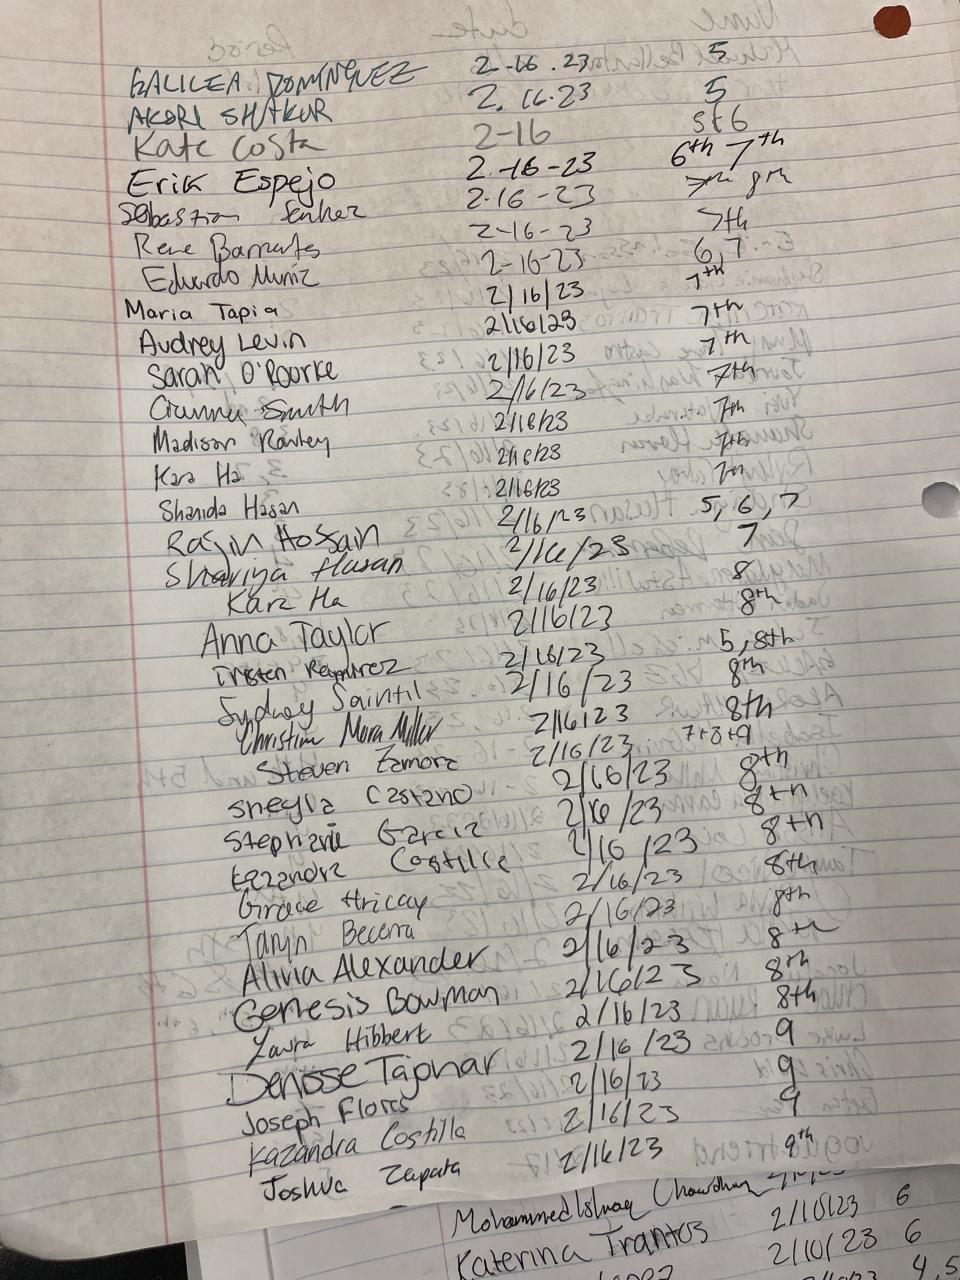 GALILEA DOMINGUEZ 2-16.23 5
AKORI SHAKUR 2.16.23 5
Kate Costa 2-16 5+6
Erik Espejo 2-16-23 6th 7th
Sebastian 2-16-23 8th
Rene Barrientos 2-16-23 7th
Eduardo Muniz 2-16-23 6,7
Maria Tapia 2/16/23 7th
Audrey Levin 2/16/23 7th
Sarah O'Rourke 2/16/23 7th
Gianna Smith 2/16/23 7th
Madison 2/16/23 7th
Kara Ha 2/16/23 7th
Shanida Hasan 2/16/23 7th
Rasin Hossain 2/16/23 5, 6, 7
Shariya Hasan 2/16/23 7
Kara Ha 2/16/23 8
Anna Taylor 2/16/23 8th
Tristen Ramirez 2/16/23 5, 8th
Sydney Saintil 2/16/23 8th
Christian Mora Miller 2/16/23 8th
Steven Zamora 2/16/23 7+8+9
Sheyla Castano 2/16/23 8th
Stephanie Garcia 2/16/23 8th
Costilla 2/16/23 8th
Grace Hricay 2/16/23 8th
Taryn Becerra 2/16/23 8th
Alivia Alexander 2/16/23 8th
Genesis Bowman 2/16/23 8th
Laura Hibbert 2/16/23 8th
Denisse Tajonar 2/16/23 9
Joseph Flores 2/16/23 9
Kazandra Costilla 2/16/23 9
Joshua Zapata 2/16/23 9th
Mohammed Ishaq Chowdhury 2/10/23 6
Katerina Trantos 2/10/23 6
4,5